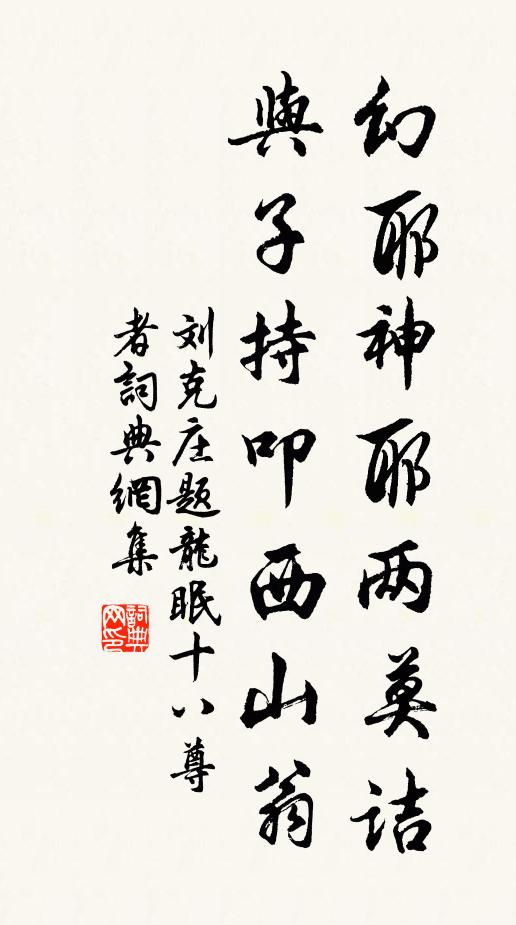 幻耶神耶两莫诘
與子持叩西山翁
刘克庄题龍眠十八尊
者詞典網集
詞典网印